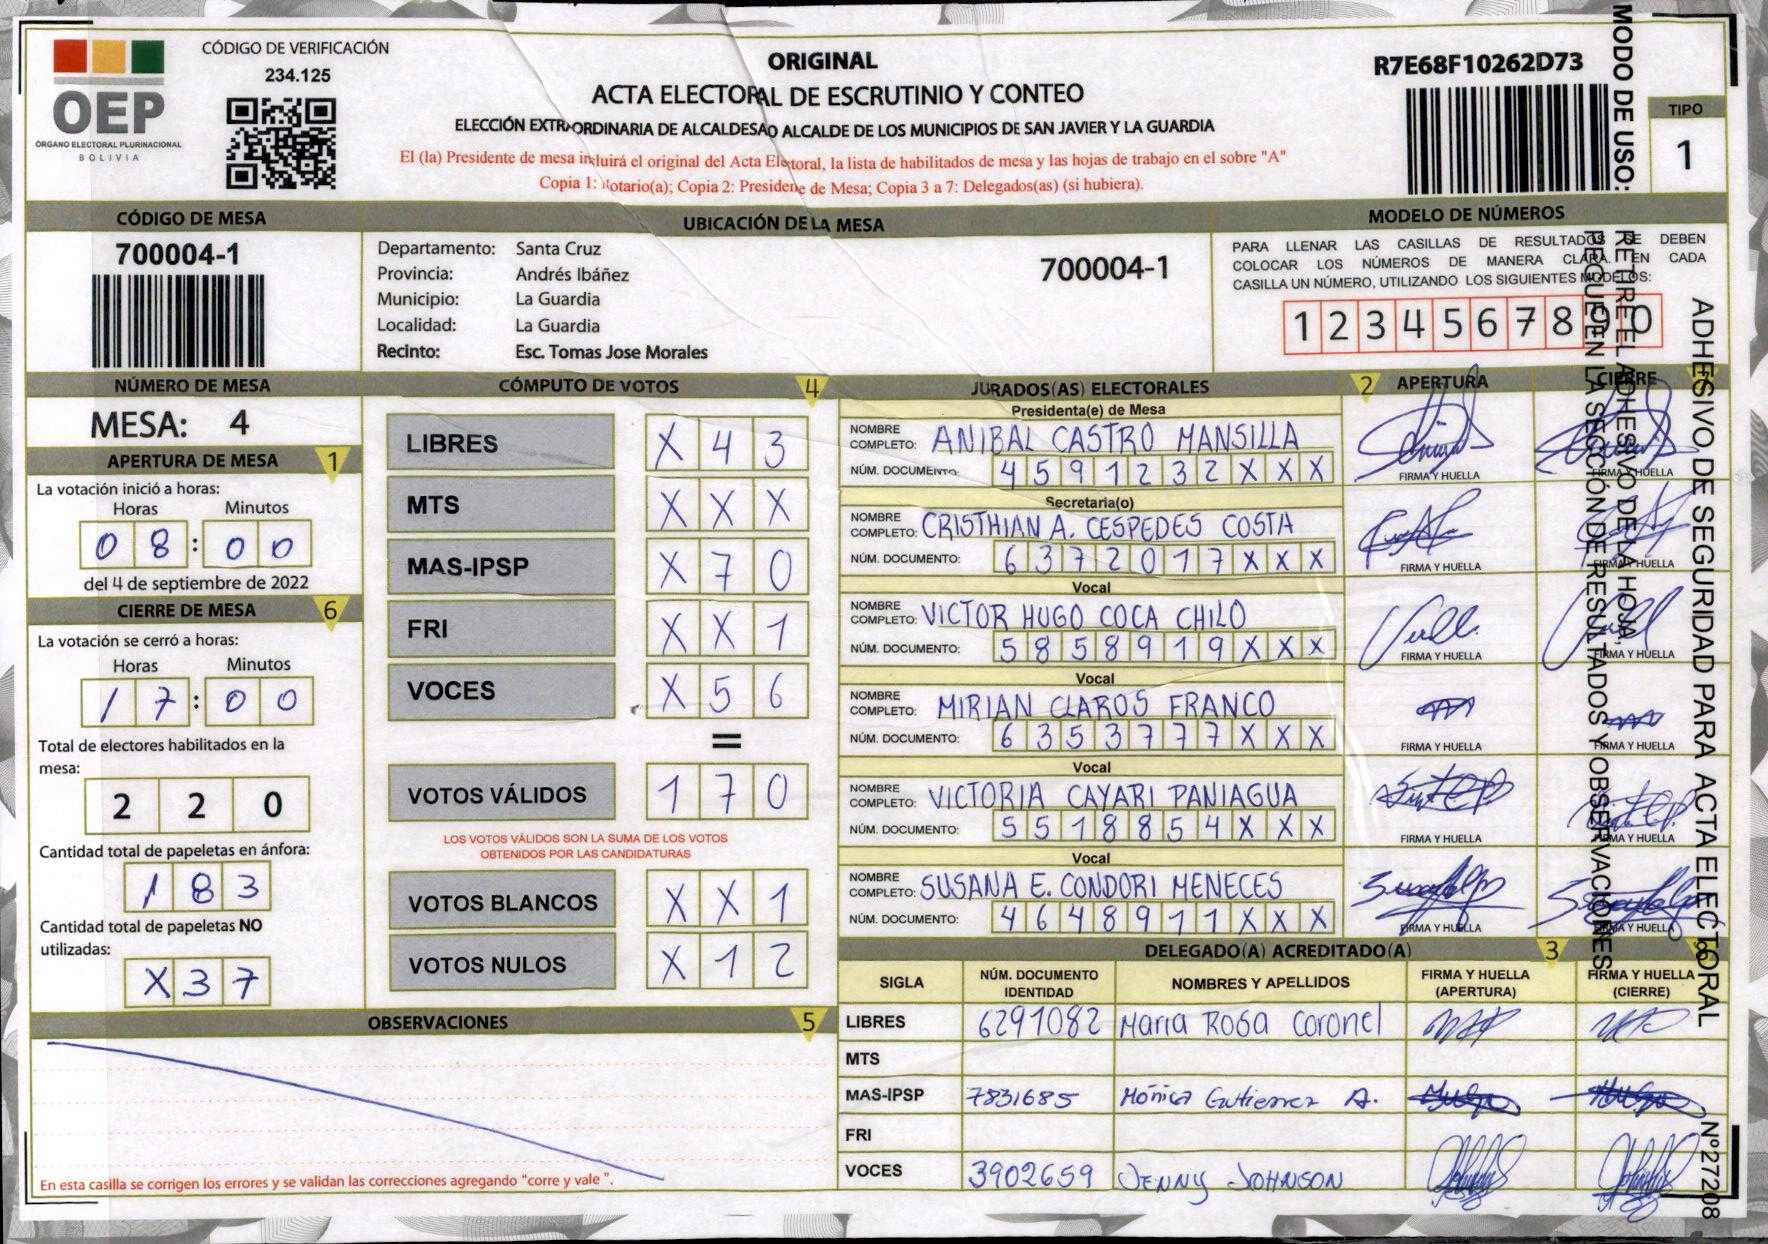 OEP
ÓRGANO ELECTORAL PLURINACIONAL
BOLIVIA
CÓDIGO DE VERIFICACIÓN
234.125
ORIGINAL
ACTA ELECTORAL DE ESCRUTINIO Y CONTEO
ELECCIÓN EXTRAORDINARIA DE ALCALDESA O ALCALDE DE LOS MUNICIPIOS DE SAN JAVIER Y LA GUARDIA
El (la) Presidente de mesa incluirá el original del Acta Electoral, la lista de habilitados de mesa y las hojas de trabajo en el sobre "A"
Copia 1: Notario(a); Copia 2: Presidente de Mesa; Copia 3 a 7: Delegados(as) (si hubiera).
R7E68F10262D73
TIPO
1
CÓDIGO DE MESA
700004-1
UBICACIÓN DE LA MESA
Departamento: Santa Cruz
Provincia: Andrés Ibáñez
Municipio: La Guardia
Localidad: La Guardia
Recinto: Esc. Tomas Jose Morales
700004-1
MODELO DE NÚMEROS
PARA LLENAR LAS CASILLAS DE RESULTADOS SE DEBEN
COLOCAR LOS NÚMEROS DE MANERA CLARA. EN CADA
CASILLA UN NÚMERO, UTILIZANDO LOS SIGUIENTES MODELOS:
1 2 3 4 5 6 7 8 9 0
NÚMERO DE MESA
MESA: 4
APERTURA DE MESA 1
La votación inició a horas:
Horas Minutos
08:00
del 4 de septiembre de 2022
CIERRE DE MESA 6
La votación se cerró a horas:
Horas Minutos
17:00
Total de electores habilitados en la
mesa:
2 2 0
Cantidad total de papeletas en ánfora:
183
Cantidad total de papeletas NO
utilizadas:
X37
CÓMPUTO DE VOTOS 4
LIBRES X 4 3
MTS X X X
MAS-IPSP X 7 0
FRI X X 1
VOCES X 5 6
=
VOTOS VÁLIDOS 1 7 0
LOS VOTOS VÁLIDOS SON LA SUMA DE LOS VOTOS
OBTENIDOS POR LAS CANDIDATURAS
VOTOS BLANCOS X X 1
VOTOS NULOS X 1 2
OBSERVACIONES 5
En esta casilla se corrigen los errores y se validan las correcciones agregando "corre y vale ".
JURADOS(AS) ELECTORALES 2 APERTURA CIERRE
Presidenta(e) de Mesa
NOMBRE COMPLETO: ANIBAL CASTRO MANSILLA
NÚM. DOCUMENTO: 4591232XXX
FIRMA Y HUELLA FIRMA Y HUELLA
Secretaria(o)
NOMBRE COMPLETO: CRISTHIAN A. CESPEDES COSTA
NÚM. DOCUMENTO: 6372017XXX
FIRMA Y HUELLA FIRMA Y HUELLA
Vocal
NOMBRE COMPLETO: VICTOR HUGO COCA CHILO
NÚM. DOCUMENTO: 5858919XXX
FIRMA Y HUELLA FIRMA Y HUELLA
Vocal
NOMBRE COMPLETO: MIRIAN CLAROS FRANCO
NÚM. DOCUMENTO: 6353777XXX
FIRMA Y HUELLA FIRMA Y HUELLA
Vocal
NOMBRE COMPLETO: VICTORIA CAYARI PANIAGUA
NÚM. DOCUMENTO: 5518854XXX
FIRMA Y HUELLA FIRMA Y HUELLA
Vocal
NOMBRE COMPLETO: SUSANA E. CONDORI MENECES
NÚM. DOCUMENTO: 4648911XXX
FIRMA Y HUELLA FIRMA Y HUELLA
DELEGADO(A) ACREDITADO(A) 3
SIGLA NÚM. DOCUMENTO IDENTIDAD NOMBRES Y APELLIDOS FIRMA Y HUELLA (APERTURA) FIRMA Y HUELLA (CIERRE)
LIBRES 6291082 Maria Rosa Coronel
MTS
MAS-IPSP 7831685 Mónica Gutierrez A.
FRI
VOCES 3902659 JENNY JOHNSON
MODO DE USO:
RETIRE EL ADHESIVO DE LA HOJA,
PEGUE EN LA SECCIÓN DE RESULTADOS Y OBSERVACIONES
ADHESIVO DE SEGURIDAD PARA ACTA ELECTORAL
Nº27208